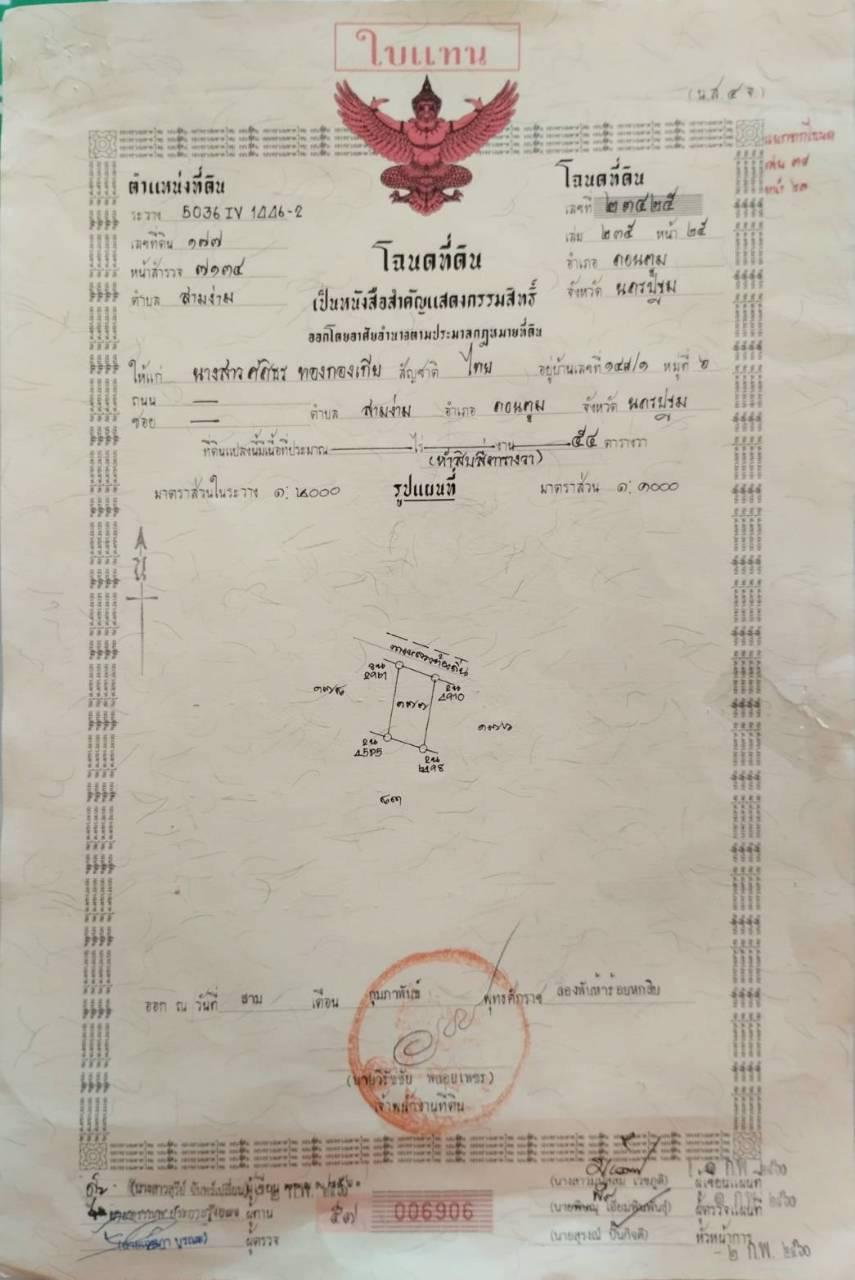 ใบแทน
(น.ส.๔ จ.)
ตำแหน่งที่ดิน
ระวาง 5036 IV 1446-2
เลขที่ดิน ๑๗๗
หน้าสำรวจ ๗๑๓๔
ตำบล สามง่าม
โฉนดที่ดิน
เลขที่ ๒๓๔๒๕
เล่ม ๒๓๕ หน้า ๒๕
อำเภอ ดอนตูม
จังหวัด นครปฐม
โฉนดที่ดิน
เป็นหนังสือสำคัญแสดงกรรมสิทธิ์
ออกโดยอาศัยอำนาจตามประมวลกฎหมายที่ดิน
ให้แก่ นางสาว ทองกองเทีย สัญชาติ ไทย อยู่บ้านเลขที่ ๑๔๘/๑ หมู่ที่ ๖
ถนน —
ซอย — ตำบล สามง่าม อำเภอ ดอนตูม จังหวัด นครปฐม
ที่ดินแปลงนี้มีเนื้อที่ประมาณ — ไร่ — งาน ๕๔ ตารางวา
(ห้าสิบสี่ตารางวา)
มาตราส่วนในระวาง ๑: ๒๐๐๐ รูปแผนที่ มาตราส่วน ๑: ๑๐๐๐
น
ทางหลวงท้องถิ่น
๑๗๗
๑๗๖
ออก ณ วันที่ สาม เดือน กุมภาพันธ์ พุทธศักราช สองพันห้าร้อยหกสิบ
(นายวิรัชชัย พลอยเพชร)
เจ้าพนักงานที่ดิน
ผู้เขียน
ผู้ทาน
ผู้ตรวจ
๕๗ 006906
ผู้เขียนแผนที่
ผู้ตรวจแผนที่
(นายสุรงณ์ ปิ่นกิจติ) หัวหน้าการ
๒ ก.พ. ๒๕๖๐